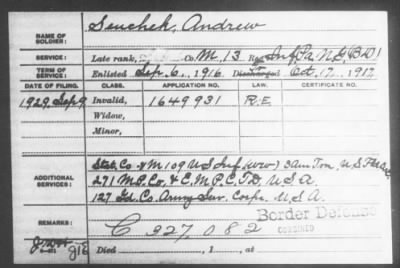 NAME OF SOLDIER: Senchek, Andrew
SERVICE: Late rank, Co. M, 13 Reg. Inf. Pa. N.G.
TERM OF SERVICE: Enlisted Sep. 6, 1916. Discharged Oct. 17, 1917
DATE OF FILING. CLASS. APPLICATION NO. LAW. CERTIFICATE NO.
1929, Sep 9 Invalid, 1649931 R.E.
Widow,
Minor,
ADDITIONAL SERVICES: Co M 109 U S Inf (WW)
271 M.P. Co. & E.M.P.C.T.D. U.S.A.
127 Gd. Co. Army Ser. Corps. U.S.A.
REMARKS: C 327,082 Border Defense
COMBINED
Died , 1 , at